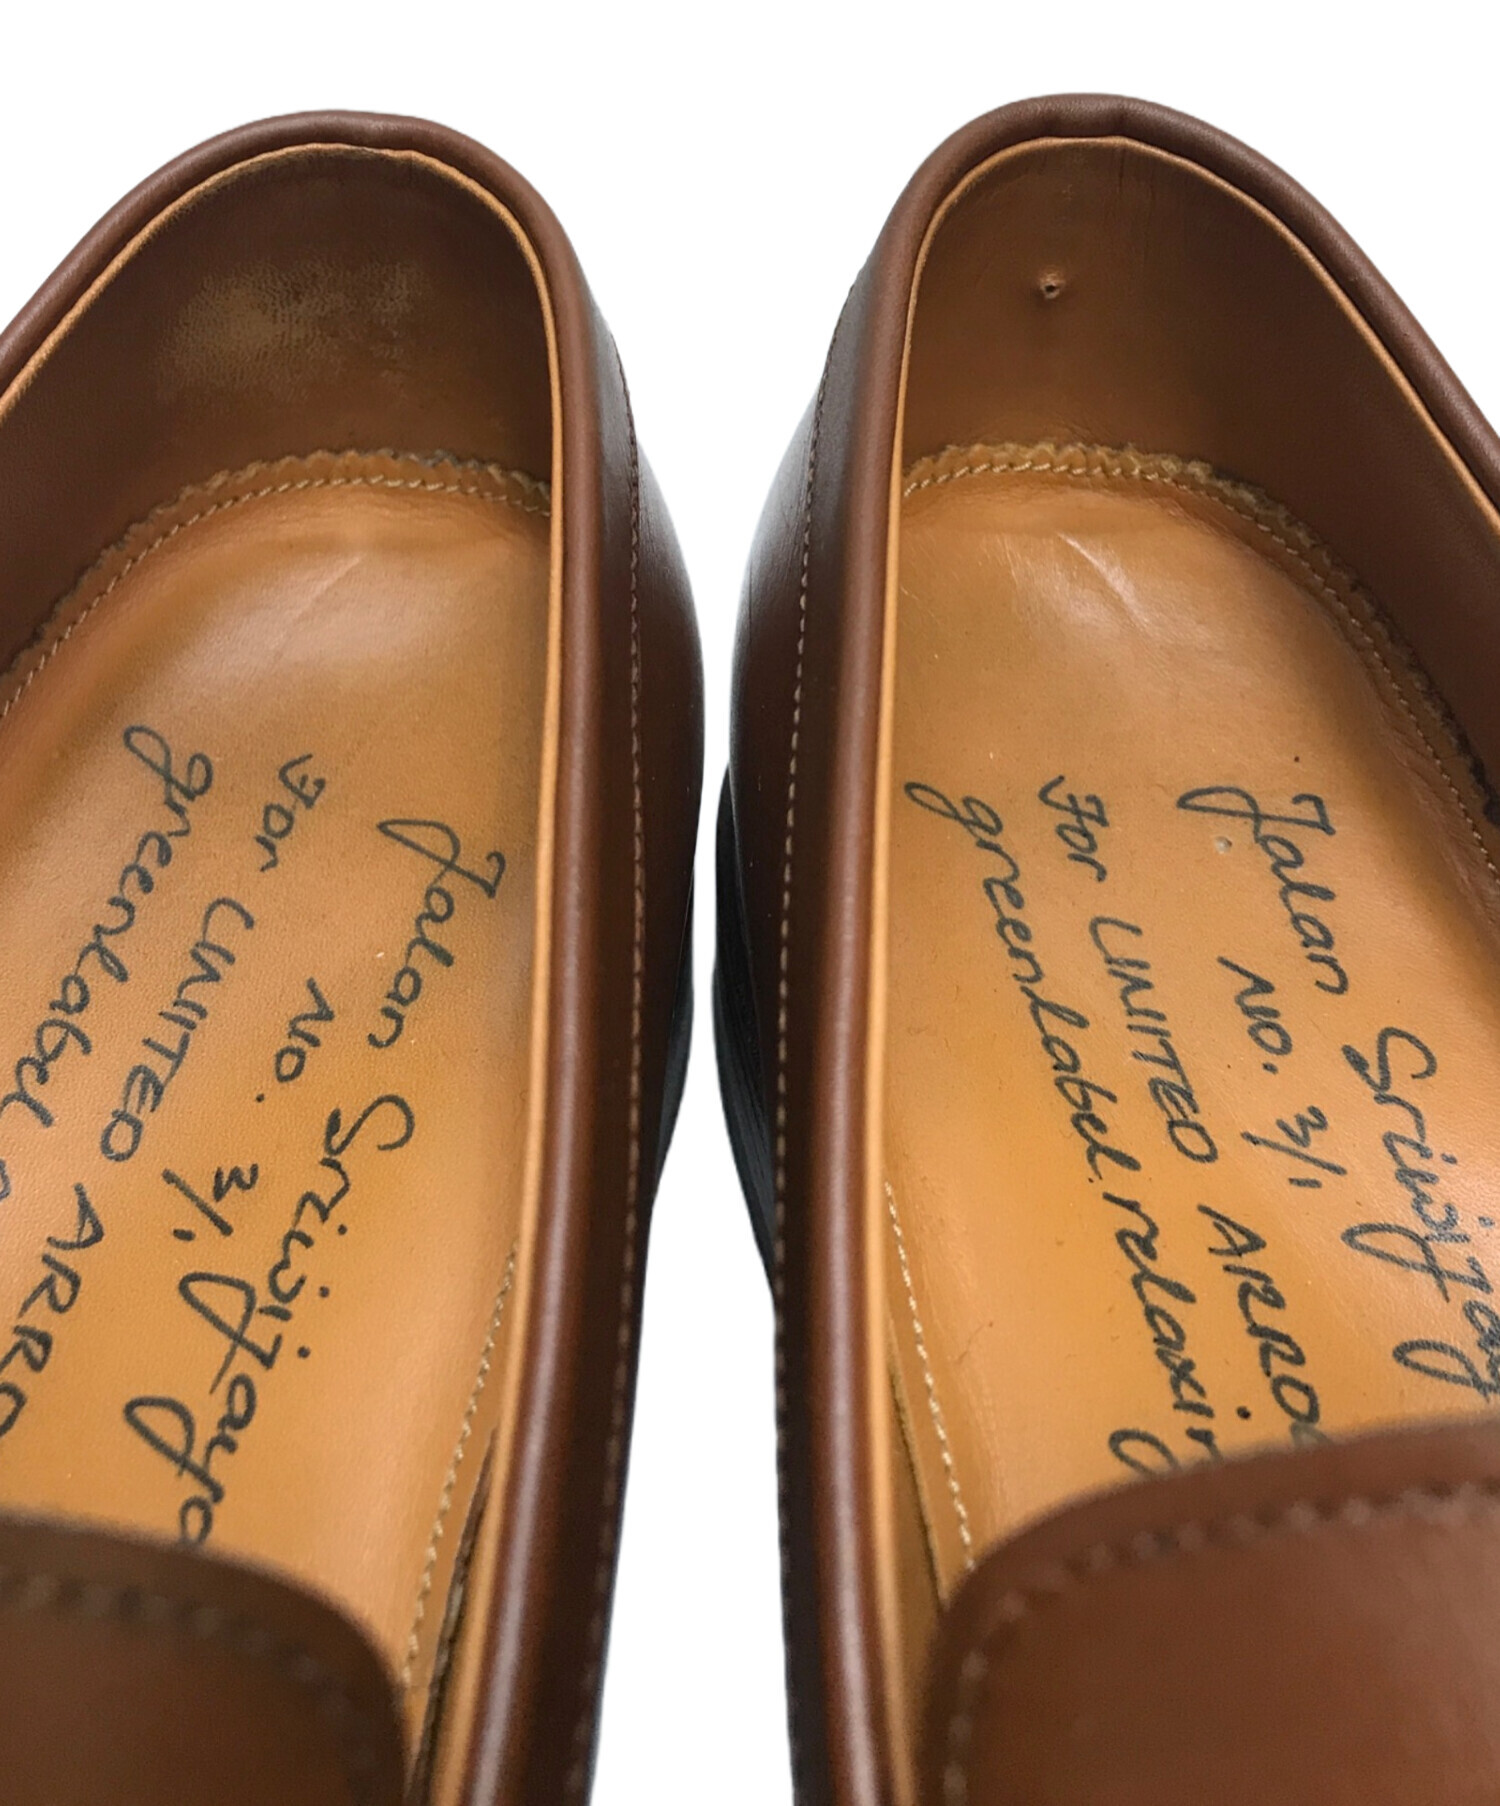 Jalan Sriwijaya
NO. 3/1.
For UNITED ARRO
greenlabel
Jalan Sriwijaya
NO. 3/1
For UNITED ARRO
greenlabel.relaxin